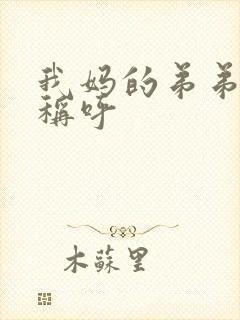 我妈的弟弟
稱呼
木蘇里